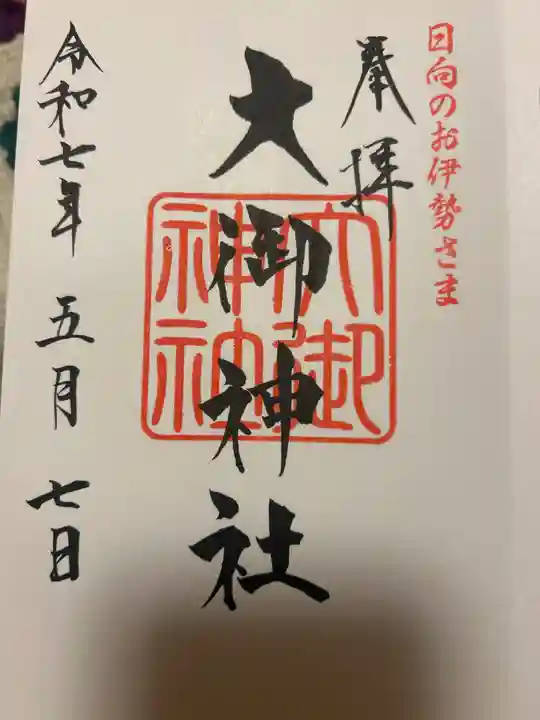 日向のお伊勢さま
奉拝
大御神社
大御
神社
令和七年 五月 七日